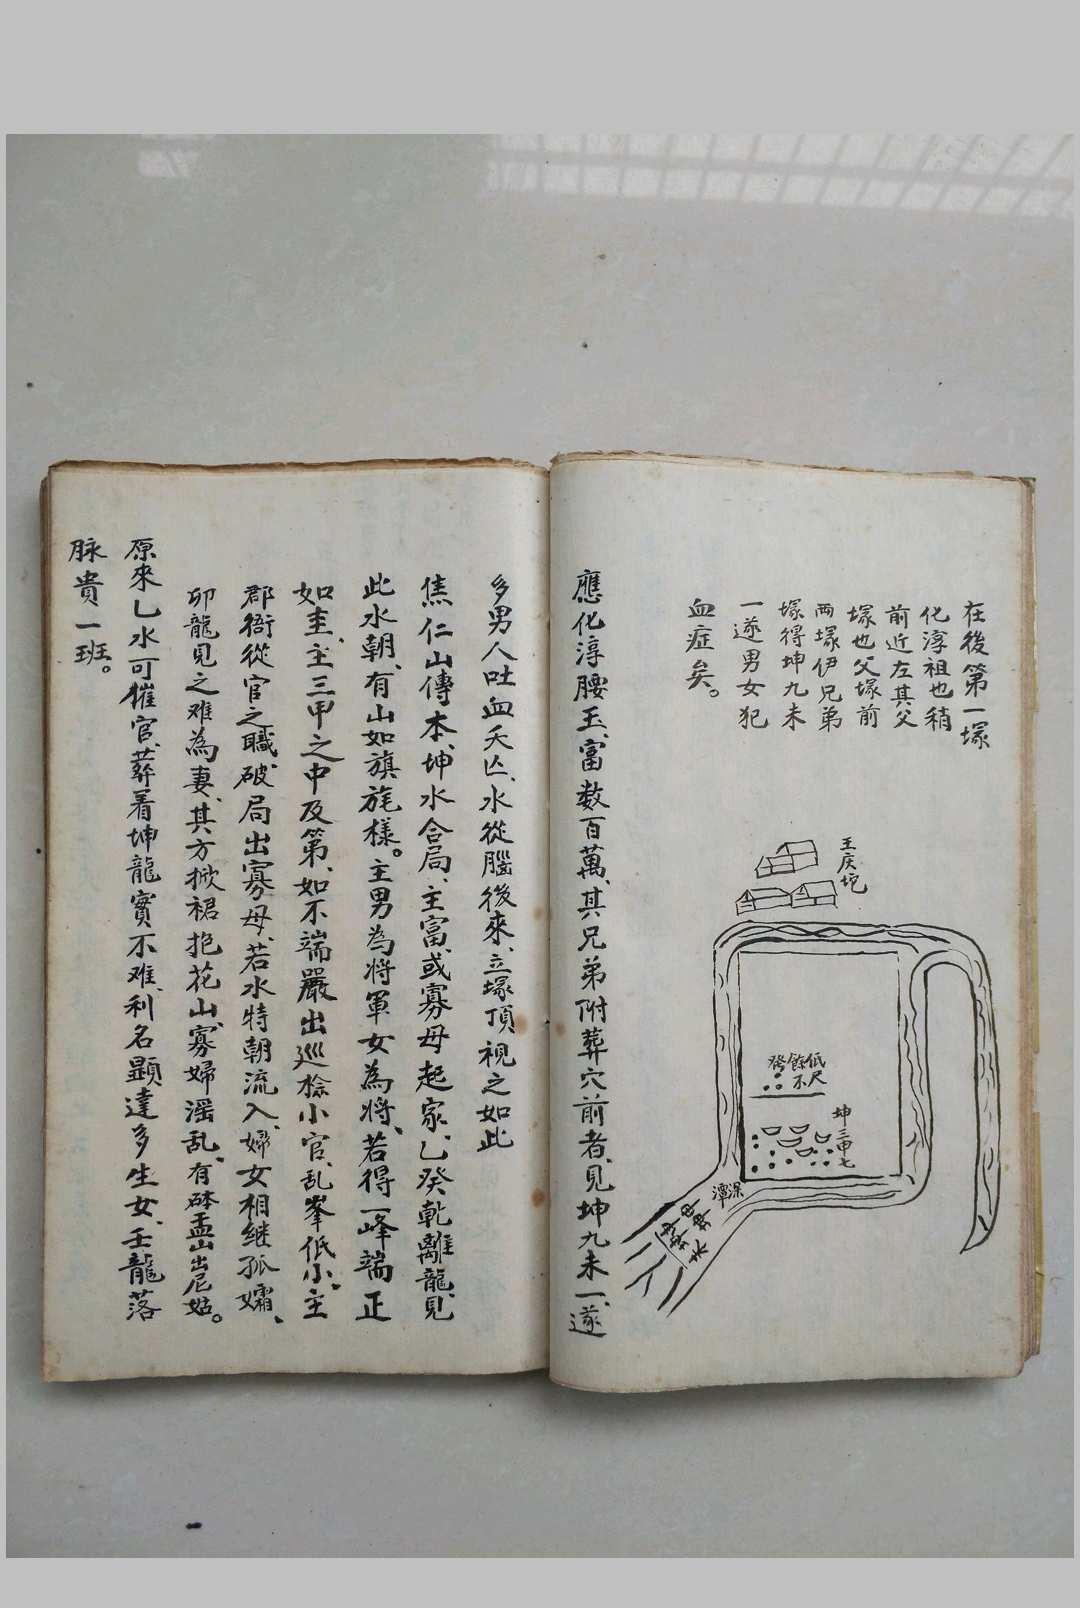 在後第一塚
化淳祖也稍
前近左其父
塚也父塚前
两塚伊兄弟
塚得坤九未
一遂男女犯
血症矣。
王庆圫
發餘低
不尺
坤三申七
深潭
應化淳腰玉、富数百萬、其兄弟附葬穴前者、見坤九未一、遂
多男人吐血夭亾、水從腦後來、立塚頂視之如此
焦仁山傳本、坤水合局、主富、或寡母起家、乙癸乾離龍、見
此水朝、有山如旗旄樣。主男為將軍女為將、若得一峰端正
如圭、主三甲之中及第、如不端嚴出巡檢小官、乱峯低小、主
郡衙從官之職、破局出寡母、若水特朝流入、婦女相継孤孀、
卯龍見之难為妻、其方掀裙抱花山、寡婦滛乱、有砵盂山出尼姑。
原來乙水可催官、葬着坤龍實不难、利名顕達多生女、壬龍落
脉貴一班。